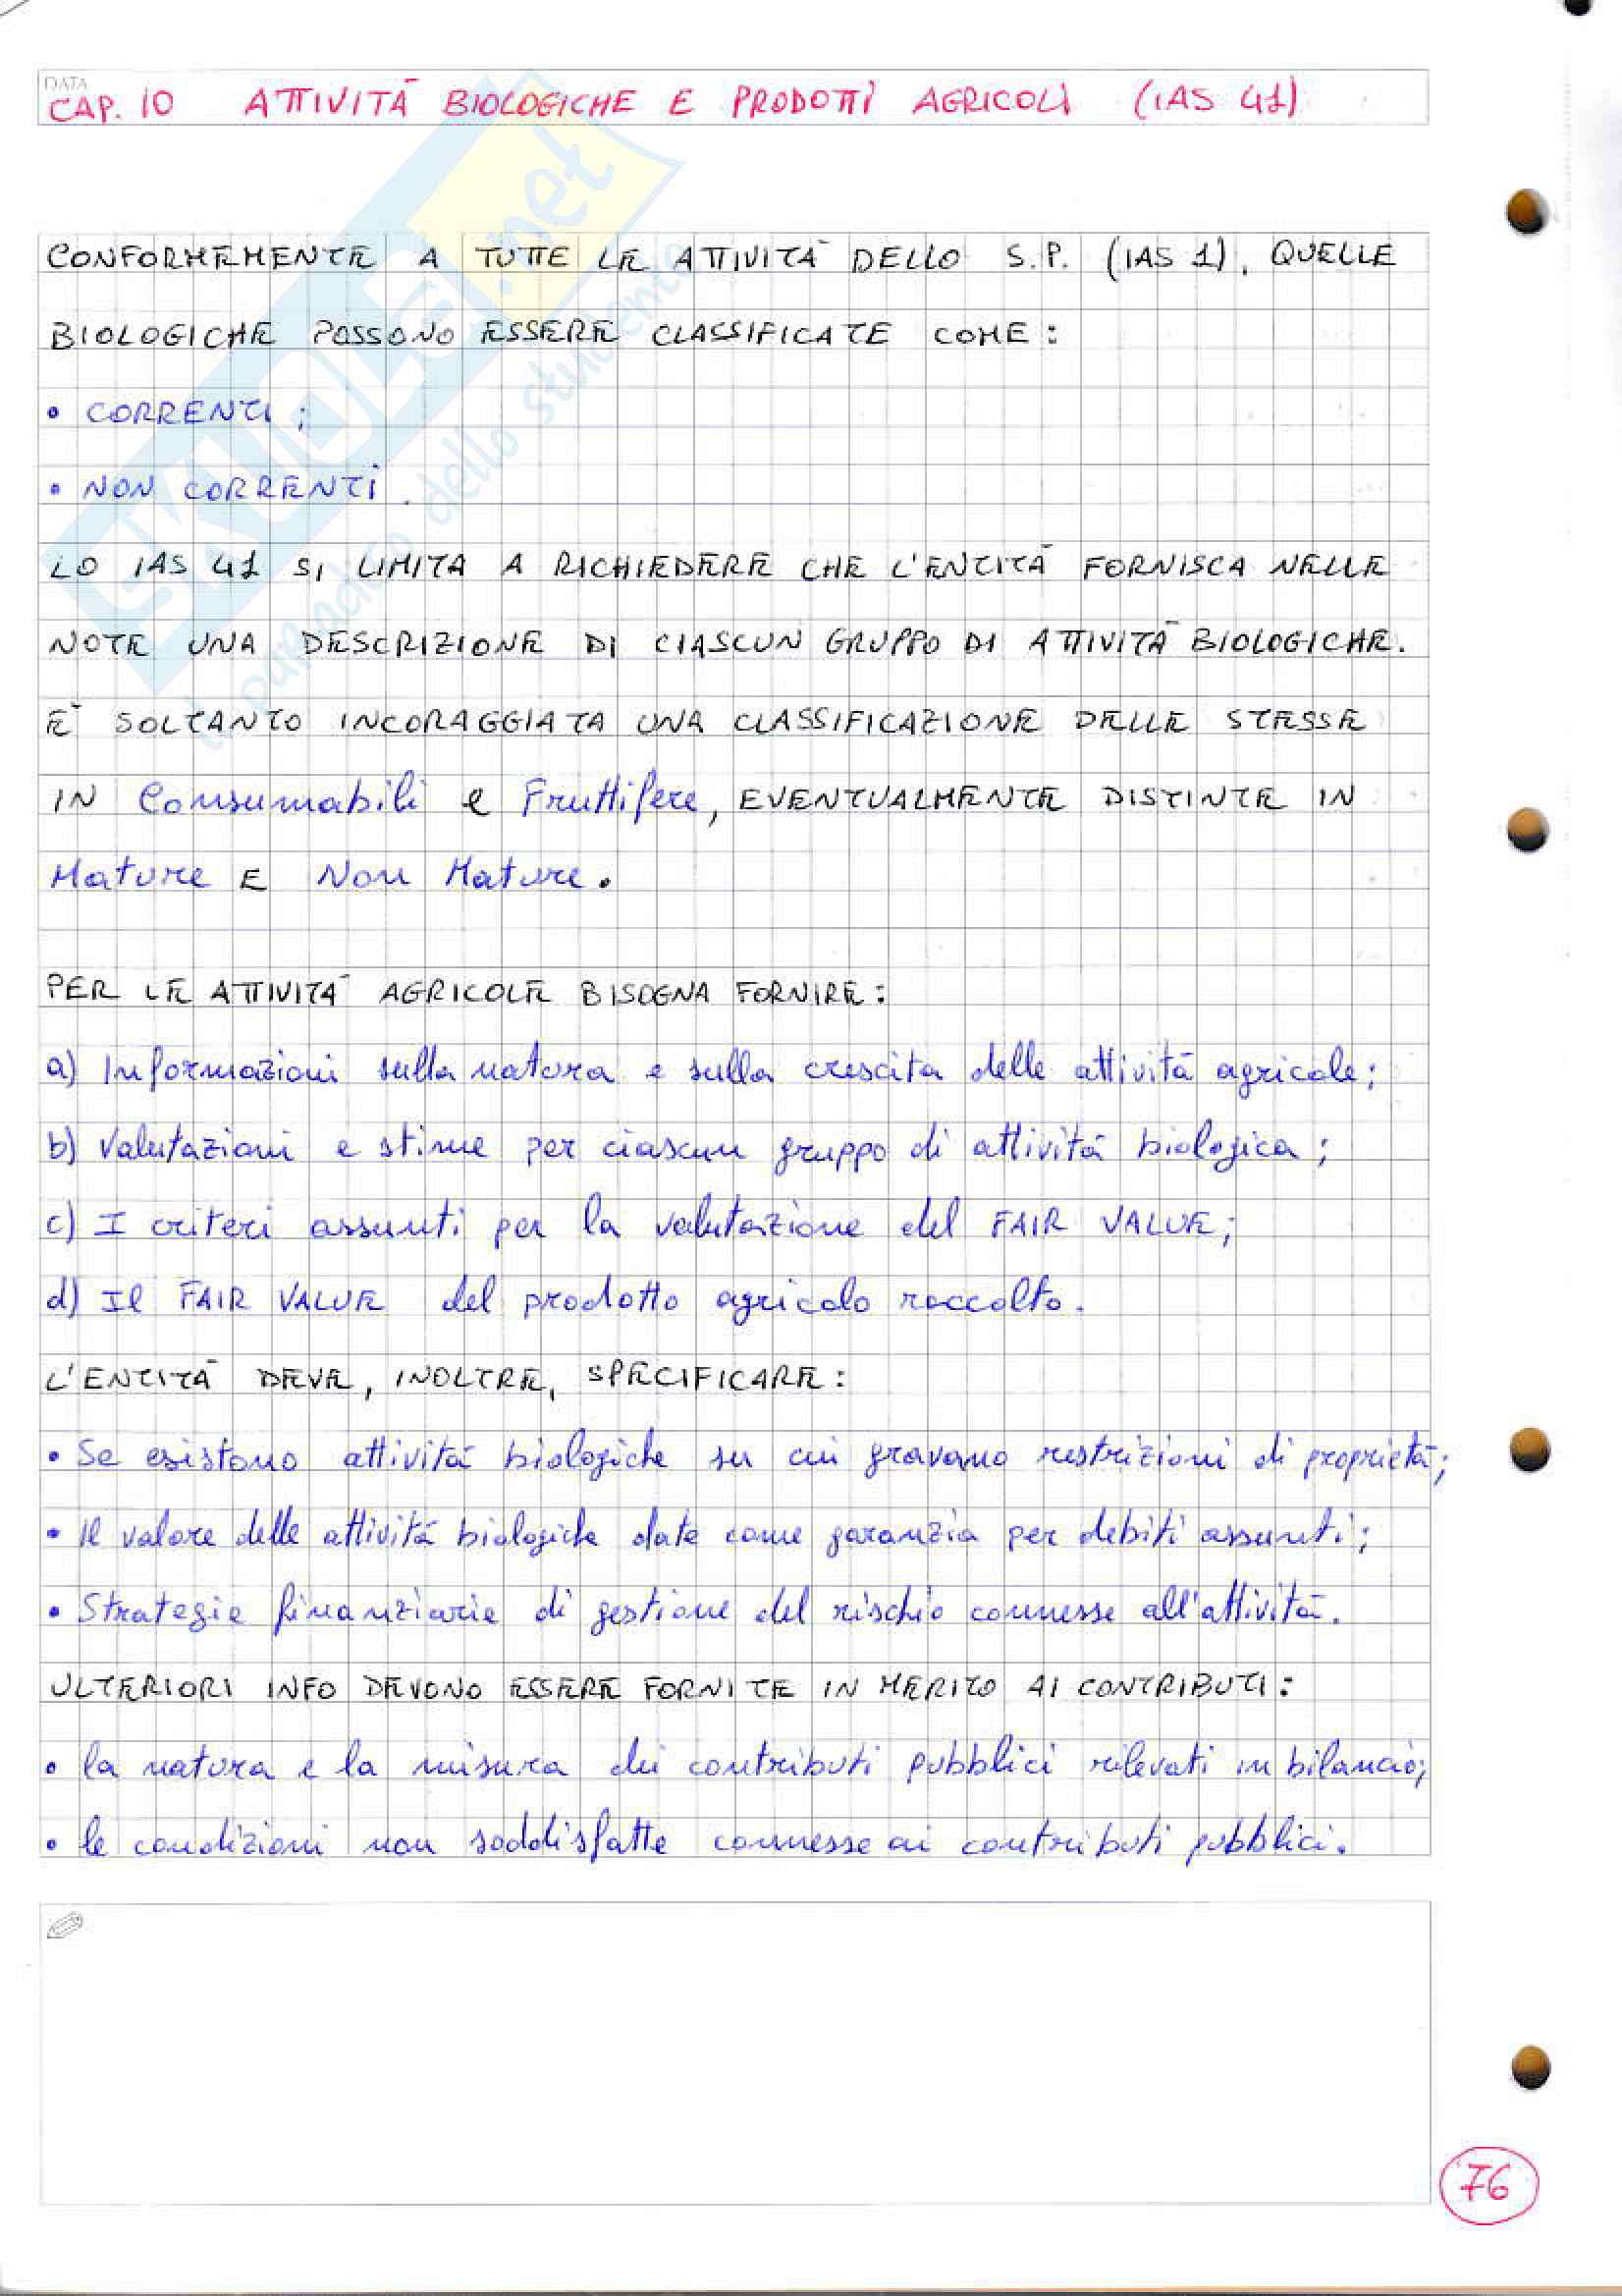 DATA
CAP. 10 ATTIVITÀ BIOLOGICHE E PRODOTTI AGRICOLI (IAS 41)
CONFORMEMENTE A TUTTE LE ATTIVITÀ DELLO S.P. (IAS 1), QUELLE
BIOLOGICHE POSSONO ESSERE CLASSIFICATE COME:
• CORRENTI;
• NON CORRENTI.
LO IAS 41 SI LIMITA A RICHIEDERE CHE L'ENTITÀ FORNISCA NELLE
NOTE UNA DESCRIZIONE DI CIASCUN GRUPPO DI ATTIVITÀ BIOLOGICHE.
È SOLTANTO INCORAGGIATA UNA CLASSIFICAZIONE DELLE STESSE
IN Consumabili e Fruttifere, EVENTUALMENTE DISTINTE IN
Mature E Non Mature.
PER LE ATTIVITÀ AGRICOLE BISOGNA FORNIRE:
a) Informazioni sulla natura e sulla crescita delle attività agricole;
b) Valutazioni e stime per ciascun gruppo di attività biologica;
c) I criteri assunti per la valutazione del FAIR VALUE;
d) Il FAIR VALUE del prodotto agricolo raccolto.
L'ENTITÀ DEVE, INOLTRE, SPECIFICARE:
• Se esistono attività biologiche su cui gravano restrizioni di proprietà;
• Il valore delle attività biologiche date come garanzia per debiti assunti;
• Strategie finanziarie di gestione del rischio connesse all'attività.
ULTERIORI INFO DEVONO ESSERE FORNITE IN MERITO AI CONTRIBUTI:
• la natura e la misura dei contributi pubblici rilevati in bilancio;
• le condizioni non soddisfatte connesse ai contributi pubblici.
76
SKUOLA.net
il paradiso dello studente